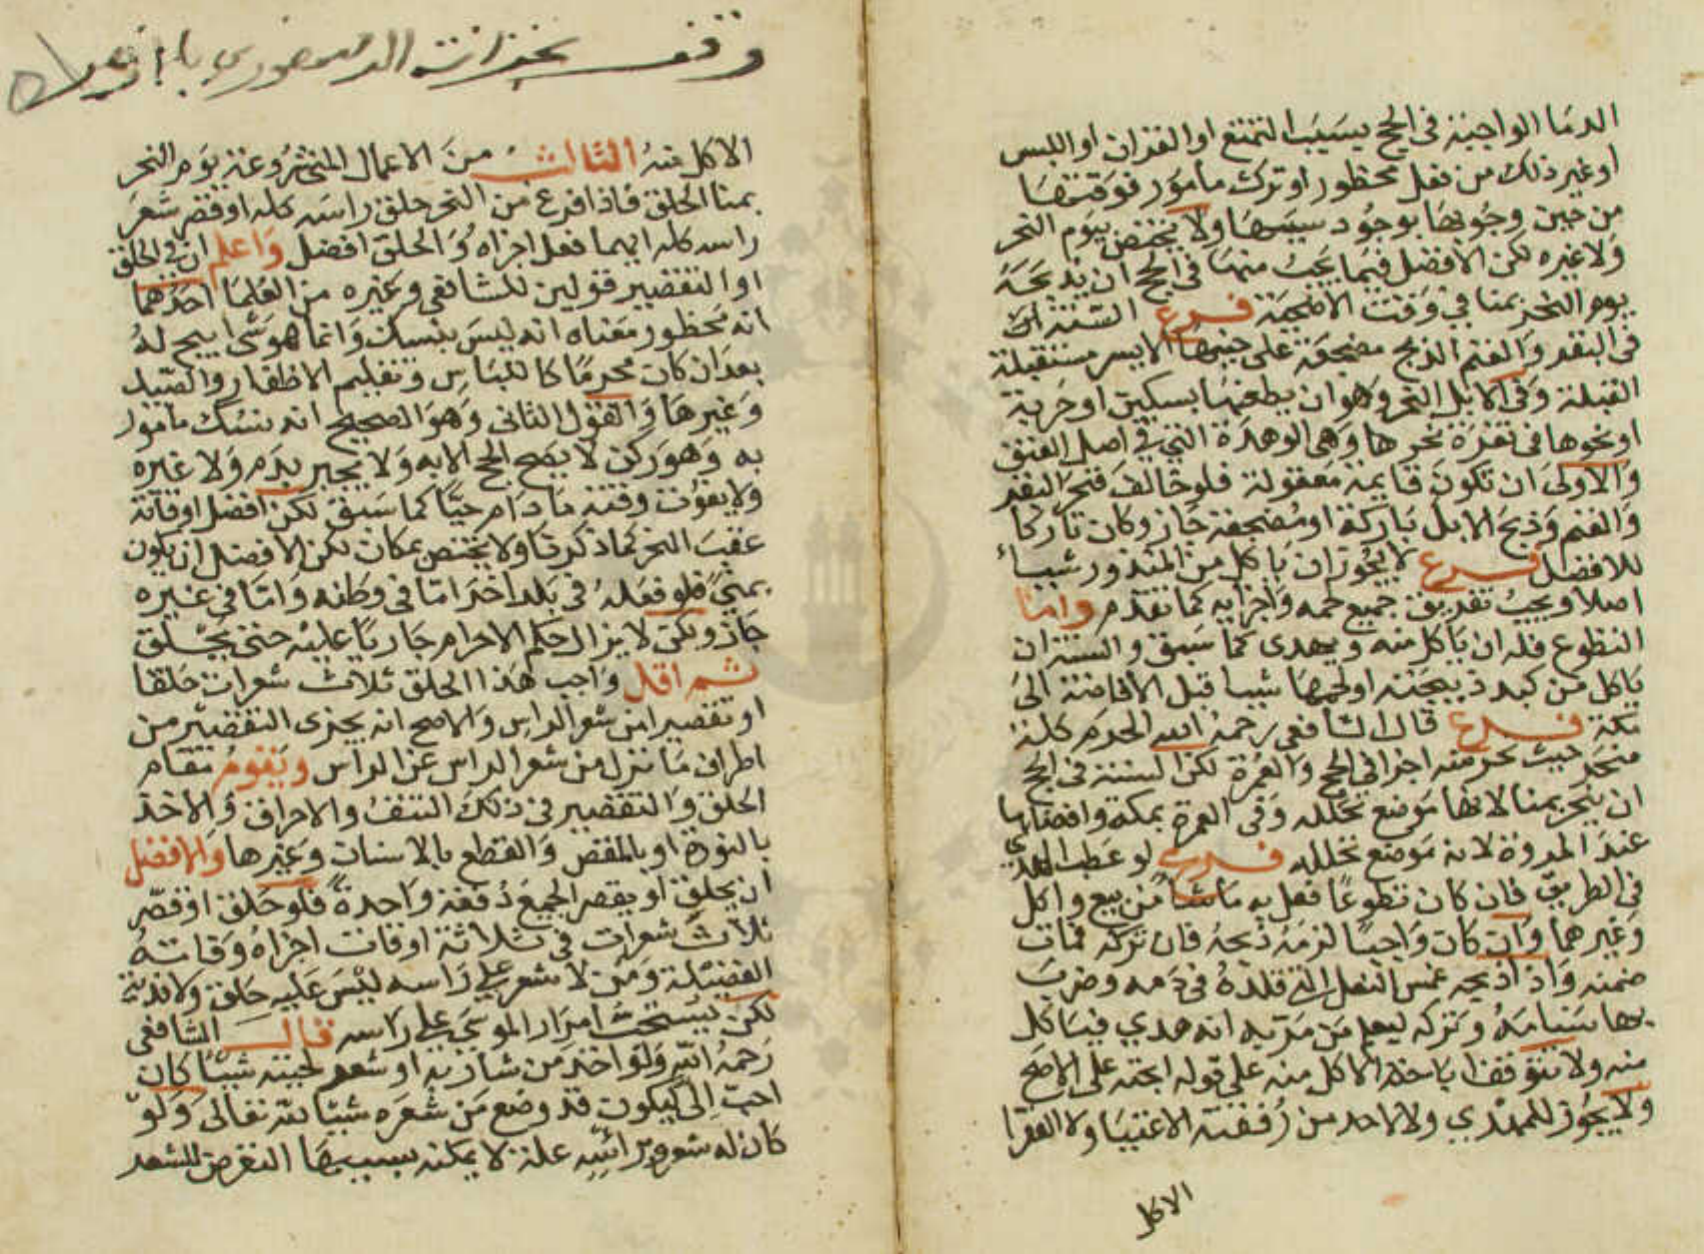 الدما الواجبة في الحج بسبب التمتع او القران او اللبس
او غير ذلك من فعل محظور او ترك مامور فوقتها
من حين وجوبها بوجود سببها ولا يختص بيوم النحر
ولا غيره لكن الافضل فيما يجب منها في الحج ان يذبحه
يوم النحر بمنا في وقت الاضحية فرع السنة
في البقر والغنم الذبح مضجعة على جنبها الايسر مستقبلة
القبلة وفي الابل النحر وهو ان يطعنها بسكين او حربة
او نحوها في ثغرة نحرها وهي الوهدة التي في اصل العنق
والاولى ان تكون قايمة معقولة فلو خالف فنحر البقر
والغنم وذبح الابل باركة او مضجعة جاز وكان تاركا
للافضل فرع لا يجوز ان ياكل من المنذور شيا
اصلا ويجب تفريق جميع لحمه واجزايه كما تقدم واما
التطوع فله ان ياكل منه ويهدى كما سبق والسنة ان
ياكل من كبد ذبيحته او لحمها شيا قبل الافاضة الى
مكة فرع قال الشافعي رحمه الله الحرم كله
منحر حيث نحر منه اجزا في الحج والعمرة لكن السنة في الحج
ان ينحر بمنا لانها موضع تحلله وفي العمرة بمكة وافضلها
عند المروة لانه موضع تحلله فرع لو عطب الهدي
في الطريق فان كان تطوعا فعل به ما شا من بيع واكل
وغيرهما وان كان واجبا لزمه ذبحه فان تركه فمات
ضمنه واذا ذبحه غمس النعل التي قلده في دمه وضرب
بها سنامه وتركه ليعلم من مر به انه هدي فياكل
منه ولا تتوقف اباحة الاكل منه على قوله ابحته على الاصح
ولا يجوز للمهدي ولا لاحد من رفقته الاغنيا ولا الفقرا
الاكل
وقف بخزانة
الاكل منه الثالث من الاعمال المشروعة يوم النحر
بمنا الحلق فاذا فرغ من النحر حلق راسه كله او قصر شعر
راسه كله ايهما فعل اجزاه والحلق افضل واعلم ان في الحلق
او التقصير قولين للشافعي وغيره من العلما احدهما
انه محظور معناه انه ليس بنسك وانما هو شى ابيح له
بعد ان كان محرما كاللباس وتقليم الاظفار والصيد
وغيرها والقول الثاني وهو الصحيح انه نسك مامور
به وهو ركن لا يصح الحج الا به ولا يجبر بدم ولا غيره
ولا يفوت وقته ما دام حيا كما سبق لكن افضل اوقاته
عقب النحر كما ذكرنا ولا يختص بمكان لكن الافضل ان يكون
بمنى فلو فعله في بلد اخر اما في وطنه واما في غيره
جاز ولكن لا يزال حكم الاحرام جاريا عليه حتى يحلق
ثم اقل واجب هذا الحلق ثلاث شعرات حلقا
او تقصيرا من شعر الراس والاصح انه يجزى التقصير من
اطراف ما نزل من شعر الراس عن الراس ويقوم مقام
الحلق والتقصير في ذلك النتف والاحراق والاخذ
بالنورة او بالمقص والقطع بالاسنان وغيرها والافضل
ان يحلق او يقصر الجميع دفعة واحدة فلو حلق او قصر
ثلاث شعرات في ثلاثة اوقات اجزاه وفاتته
الفضيلة ومن لا شعر على راسه ليس عليه حلق ولا فدية
لكن يستحب امرار الموسى على راسه قال الشافعي
رحمه الله ولو اخذ من شاربه او شعر لحيته شيا كان
احب الى ليكون قد وضع من شعره شيا لله تعالى ولو
كان له شعر وبراسه علة لا يمكنه بسببها التعرض للشعر